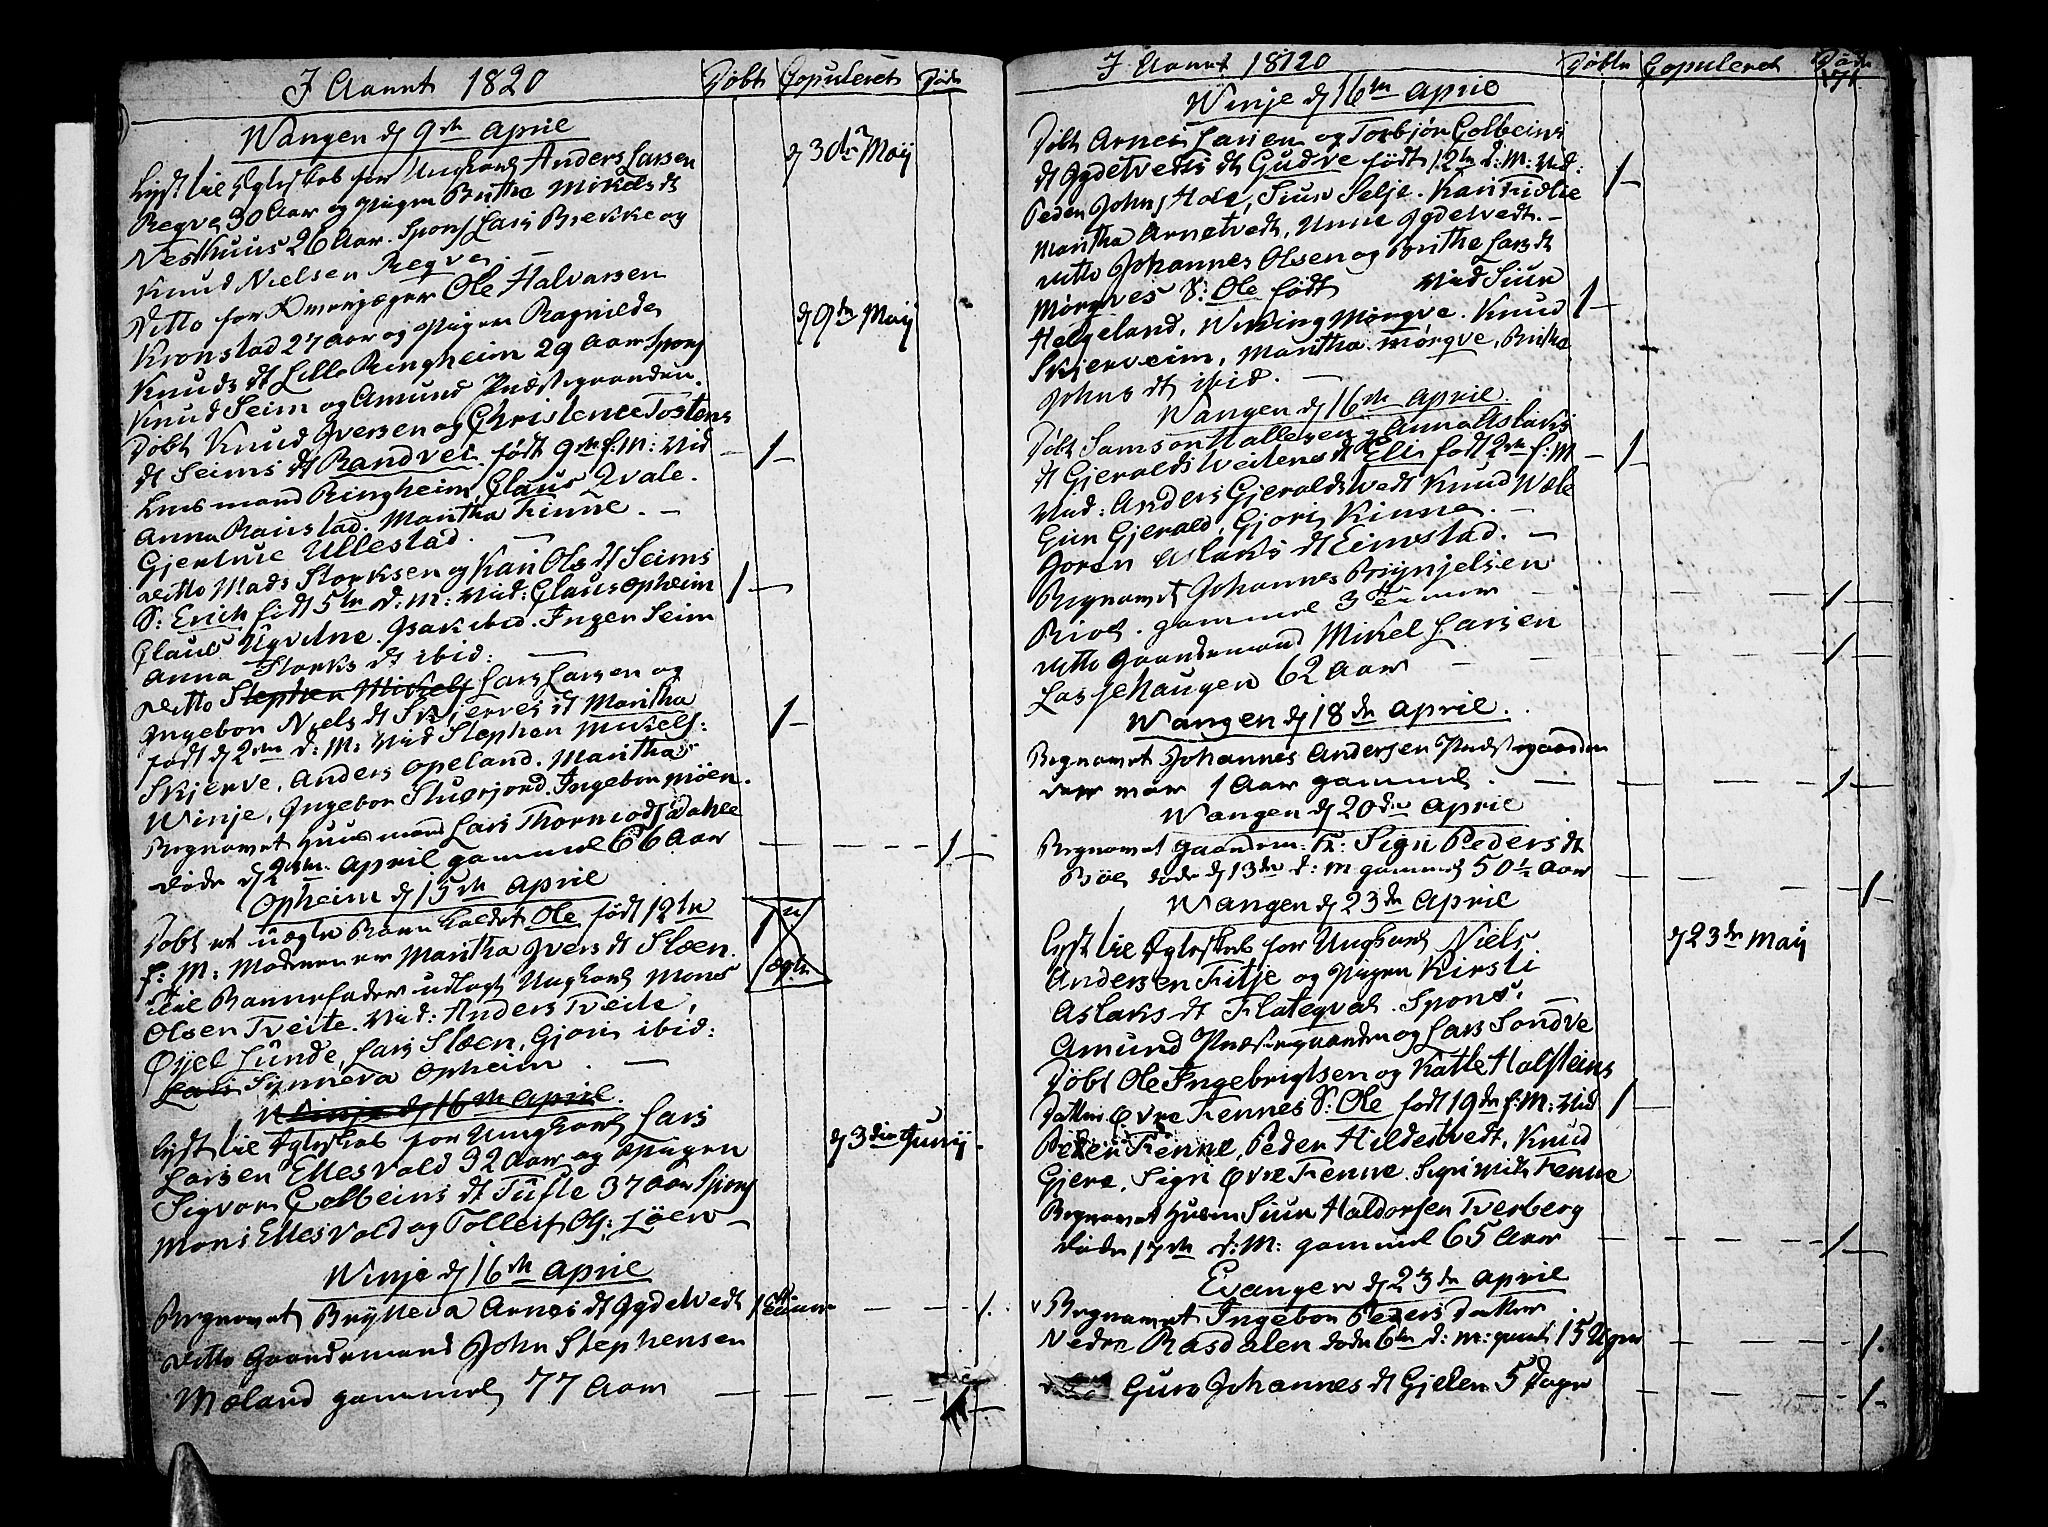 I Aaret 1820 Døbte Copuleret Døde
Wangen d 9de April
Lyst til Ægteskab for Ungkarl Anders Larsen d 30de Maij
Regve 30 Aar og Pigen Britha Mikels dt
Nesthuus 26 Aar. Spons Lars Brekke og
Knud Nielsen Regve.
Ditto for Ole Halvorsen
Kronstad 27 Aar og Pigen Ragnilde d 9de Maij
Knuds dt Lille Ringheim 29 Aar Spons
Knud Seim og Amund Præstegaarden.
Døbt Knud Iversen og Christence Tostens
dt Seims dt Randvei født 9de f: M: Vid 1
Lensmand Ringheim, Claus Qvale.
Anna Rønstad. Maritha Finne.
Gjertrue Ullestad.
Ditto Mads Storksen og Kari Ols dt Seims
S: Erich født 5te d: M: Vid: Claus Opheim 1
Claus Ugvilne. Isak ibid. Inger Seim
Anna Storks dt ibid:
Ditto Stephen Mikels Lars Larsen og
Ingebor Niels dt Skjerves dt Maritha 1
født d 2den d: M: Vid Stephen Mikels:
Skjerve, Anders Opeland. Maritha
Winje, Ingebor Sluorjord. Ingebor Møen.
Begravet Huusmand Lars Thormods Dahle
døde d 2den April gammel 66 Aar 1
Opheim d 15de April
Døbt et uægte Barn kaldet Ole født 12te 1 u
f: M: Moderen er Maritha Ivers dt Sløen. ægte
til Barnefader udlagt Ungkarl Mons
Olsen Tveite. Vid: Anders Tveite,
Øyel Lunde, Lars Sløen, Gjøri ibid:
Kari Synneva Opheim
Winje d 16de April.
Lyst til Ægteskab for Ungkarl Lars
Larsen Ellesvold 32 Aar og Pigen d 3die Junij.
Sigvor Colbeins dt Tufte 37 Aar Spons
Mons Ellesvold og Tolleif Ols: Løen
Winje d 16de April
Begravet Brytteva Arnes dt Ygdetvedt 1.
Ditto Gaardmand John Stephensen
Mæland gammel 77 Aar 1
I Aaret 1820 Døbte Copuleret Døde
171
Winje d 16de April
Døbt Arne Larsen og Torbjør Colbeins
dt Ygdetvedts dt Gudve født 12te d: M: Vid: 1
Peder Johns Hole, Siur Selje. Kari
Maritha Arnetvedt, Unne Ygdetvedt.
Ditto Johannes Olsen og Britha Lars dt
Mørqves S: Ole født Vid Siur 1
Helgeland. Mørqve. Knud
Skjerveim, Maritha Mørqve, Britha
Johns dt ibid.
Wangen d 16de April
Døbt Samson Hallesen og Anna Aslaks
dt Gjeraldstveitens dt Eli født 2den f: M 1
Vid: Anders Gjeraldstvedt Knud Wæle
Gjerald, Gjøri Kinne.
Joren Aslaks dt Eimstad.
Begravet Johannes Brynjelsen
gammel 3 Timer 1
Ditto Gaardmand Mikel Larsen
Lassehaugen 62 Aar 1
Wangen d 18de April.
Begravet Johannes Andersen Præstegaarden
1 Aar gammel. 1
Wangen d 20de April
Begravet Gaardm: K: Sigri Peders dt
Bøe døde d 13de d: M gammel 50½ Aar 1
Wangen d 23de April
Lyst til Ægteskab for Ungkarl Niels d 23de Maij
Andersen Fitje og Pigen Kirsti
Aslaks dt Flateqval. Spons.
Amund Præstegaarden og Lars Sondve
Døbt Ole Ingebrigtsen og Katle Halsteins
Datter Øvre Fennes S: Ole født 19de f: M: Vid 1
Peder Fenne, Peder Hildestvedt, Knud
Gjere. Sigri Øvre Fenne. Sigri Mitre Fenne
Begravet Huusm Siur Haldorsen Tverberg
døde 17de d: M: gammel 65 Aar 1
Evanger d 23de April
Begravet Ingebor Peders Datter
Nedre Rasdalen døde 6te d: M: gaml 15 Uger 1.
Guro Johannes dt Gjelen 5 Dage 1